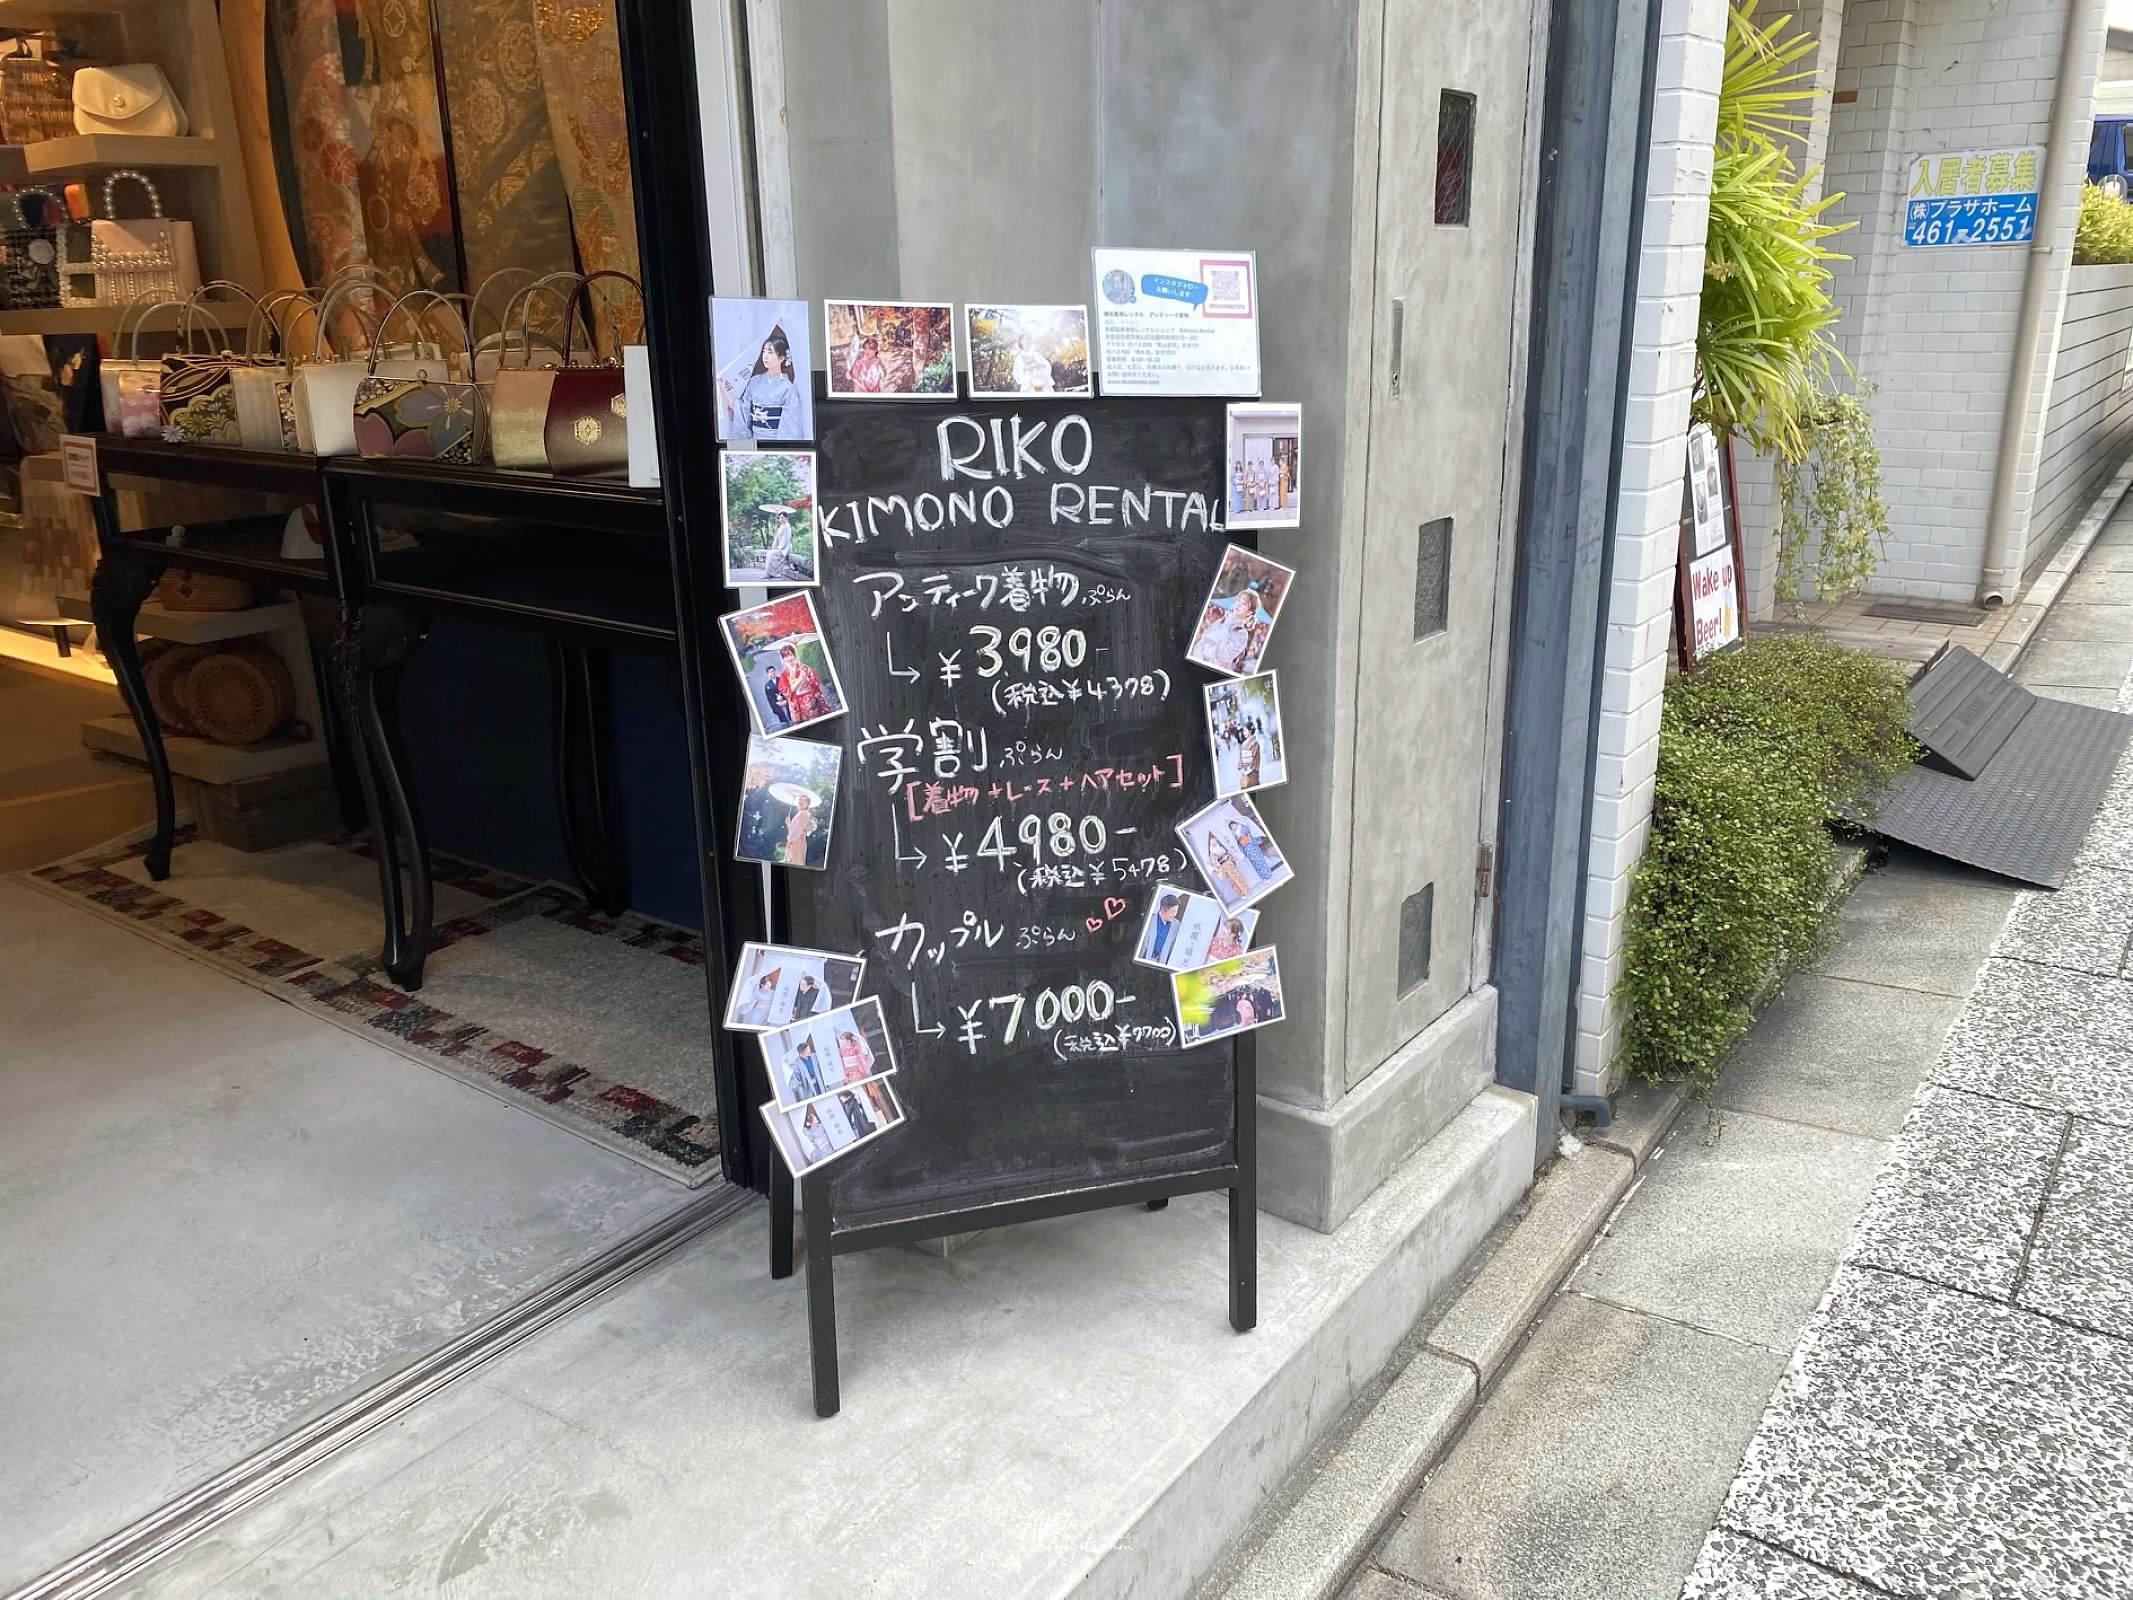 入居者募集
(株)プラザホーム
461-2551
インスタフォロー
お願いします
RIKO
KIMONO RENTAL
アンティーク着物ぷらん
↳ ¥3,980-
(税込¥4378)
学割ぷらん
[着物+レース+ヘアセット]
↳ ¥4980-
(税込¥5478)
カップルぷらん♡♡
↳ ¥7,000-
(税込¥7700)
Wake up
Beer!